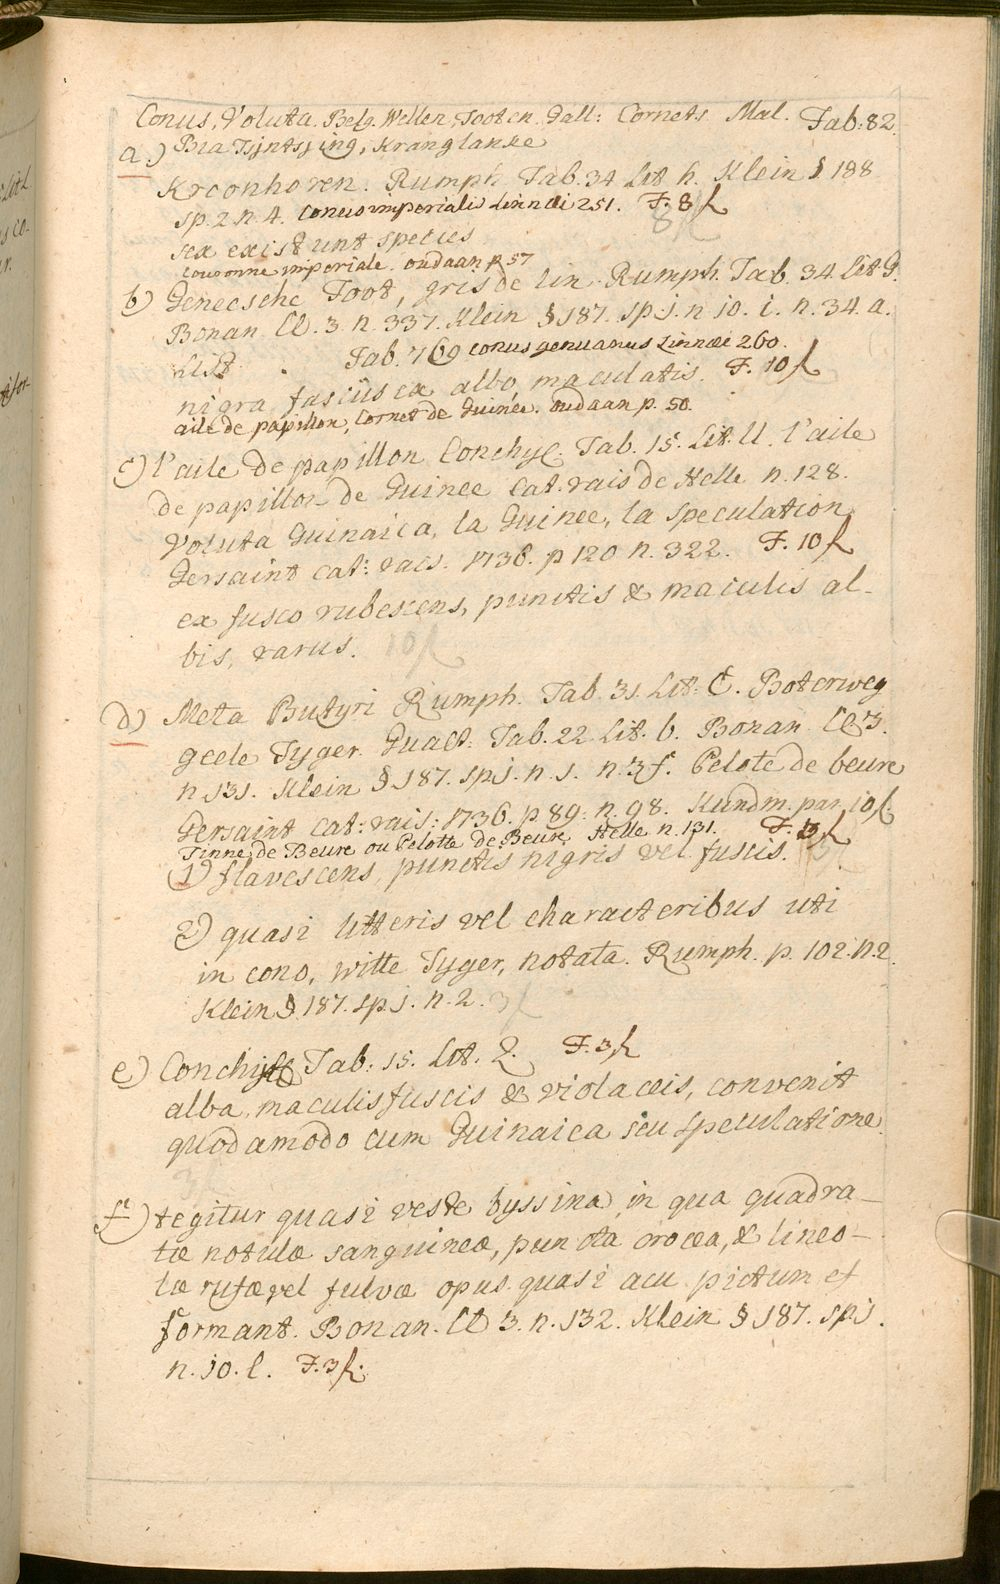 Conus, Voluta. Belg. Wellen, Tooten. Gall: Cornets. Mal. Tab: 82.
a.) Bia Tsjntsjing, Kranglanke
Kroonhoren. Rumph. Tab. 34 Lit h. Klein § 188
sp. 2 n. 4. conus imperialis Linnaei 251. F. 8 fl
8 fl
sex existunt species
couronne imperiale. oudaan p 57
b) Geneesche Toot, gris de lin. Rumph. Tab. 34. Lit G.
Bonan. Cl. 3 n. 337. Klein § 187. sp j. n 10. i. n. 34. a.
List. Tab. 769 conus genuanus Linnaei 260.
nigra, fasciis ex albo maculatis. F. 10 fl
aile de papillon, Cornet de Guinée. oudaan p. 50.
c) l'aile de papillon Conchyl. Tab. 15. Lit. ll. l'aile
de papillon de Guinee Cat. rais de Helle n. 128.
Voluta Guinaica, la Guinee, la speculation
Gersaint cat: rais. 1736. p 120 n. 322. F. 10 fl
ex fusco rubescens, punctis & maculis al-
bis, rarus. 10 fl
d) Meta Butyri Rumph. Tab. 31. Lit: C. Boterweg
geele Tyger. Gualt. Tab. 22 Lit. b. Bonan. Cl 3.
n 131. Klein § 187. sp j. n. 1. n. 3 f. Pelote de beure
Gersaint cat: rais: 1736. p. 89. n. 98. Kundm. par. 10 fl.
Tinne de Beure ou Pelotte de Beure, Helle n. 131. F. 3 fl
(1) flavescens, punctis nigris vel fuscis.
2) quasi litteris vel characteribus uti
in cono, witte Tyger, notata. Rumph. p. 102. n. 2.
Klein § 187. sp j. n. 2. 3 fl
e) Conchyl Tab: 15. Lit. Q. F. 3 fl
alba, maculis fuscis & violaceis, convenit
quodamodo cum Guinaica seu speculatione.
f) tegitur quasi veste byssina, in qua quadra-
tae notulae sanguineae, puncta crocea, & lineo-
lae rufae vel fulvae opus quasi acu pictum ef
formant. Bonan. Cl 3. n. 132. Klein § 187. sp j.
n. 10. l. F. 3 fl.